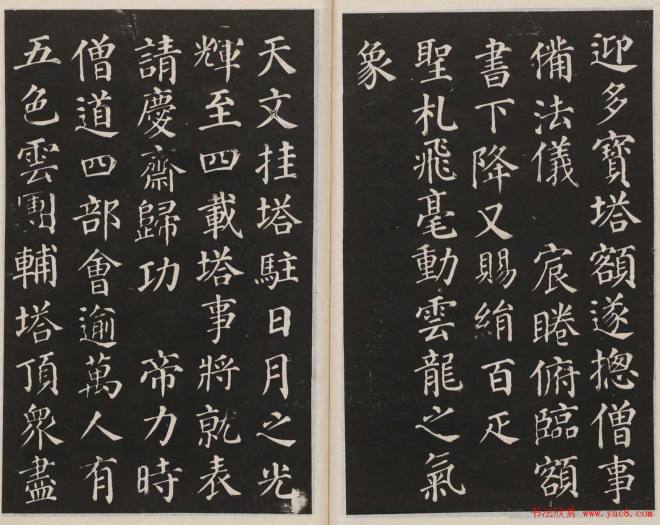 迎多寶塔額遂摠僧事
備法儀　宸睠俯臨額
書下降又賜絹百疋
聖札飛毫動雲龍之氣
象
天文挂塔駐日月之光
輝至四載塔事將就表
請慶齋歸功　帝力時
僧道四部會逾萬人有
五色雲團輔塔頂衆盡
书法欣赏 www.yac8.com